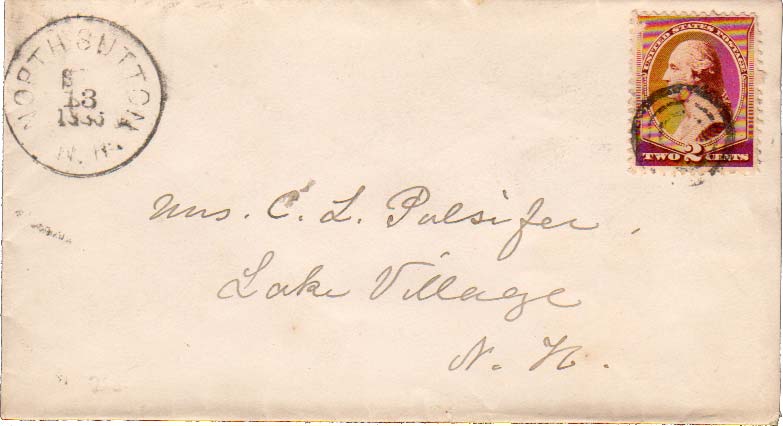 NORTH SUTTON
13
N.H.
UNITED STATES POSTAGE
TWO 2 CENTS
Mrs. C. L. Pulsifer,
Lake Village
N. H.